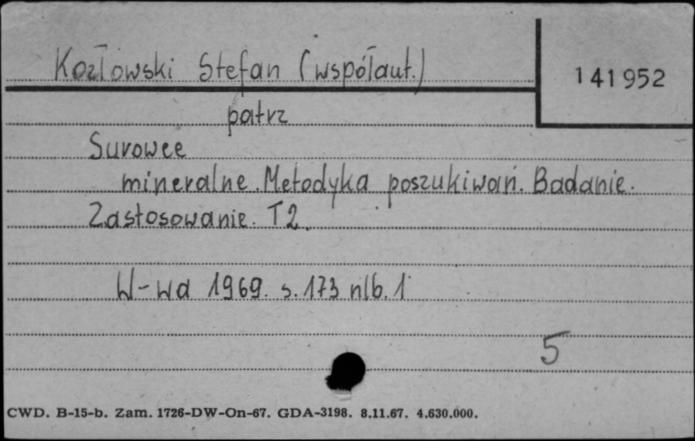 Kozłowski Stefan (współaut.)
141952
patrz
Surowce
mineralne. Metodyka poszukiwań. Badanie.
Zastosowanie. T2.
W-wa 1969. s. 173 nlb. 1
5
CWD. B-15-b. Zam. 1726-DW-On-67. GDA-3198. 8.11.67. 4.630.000.